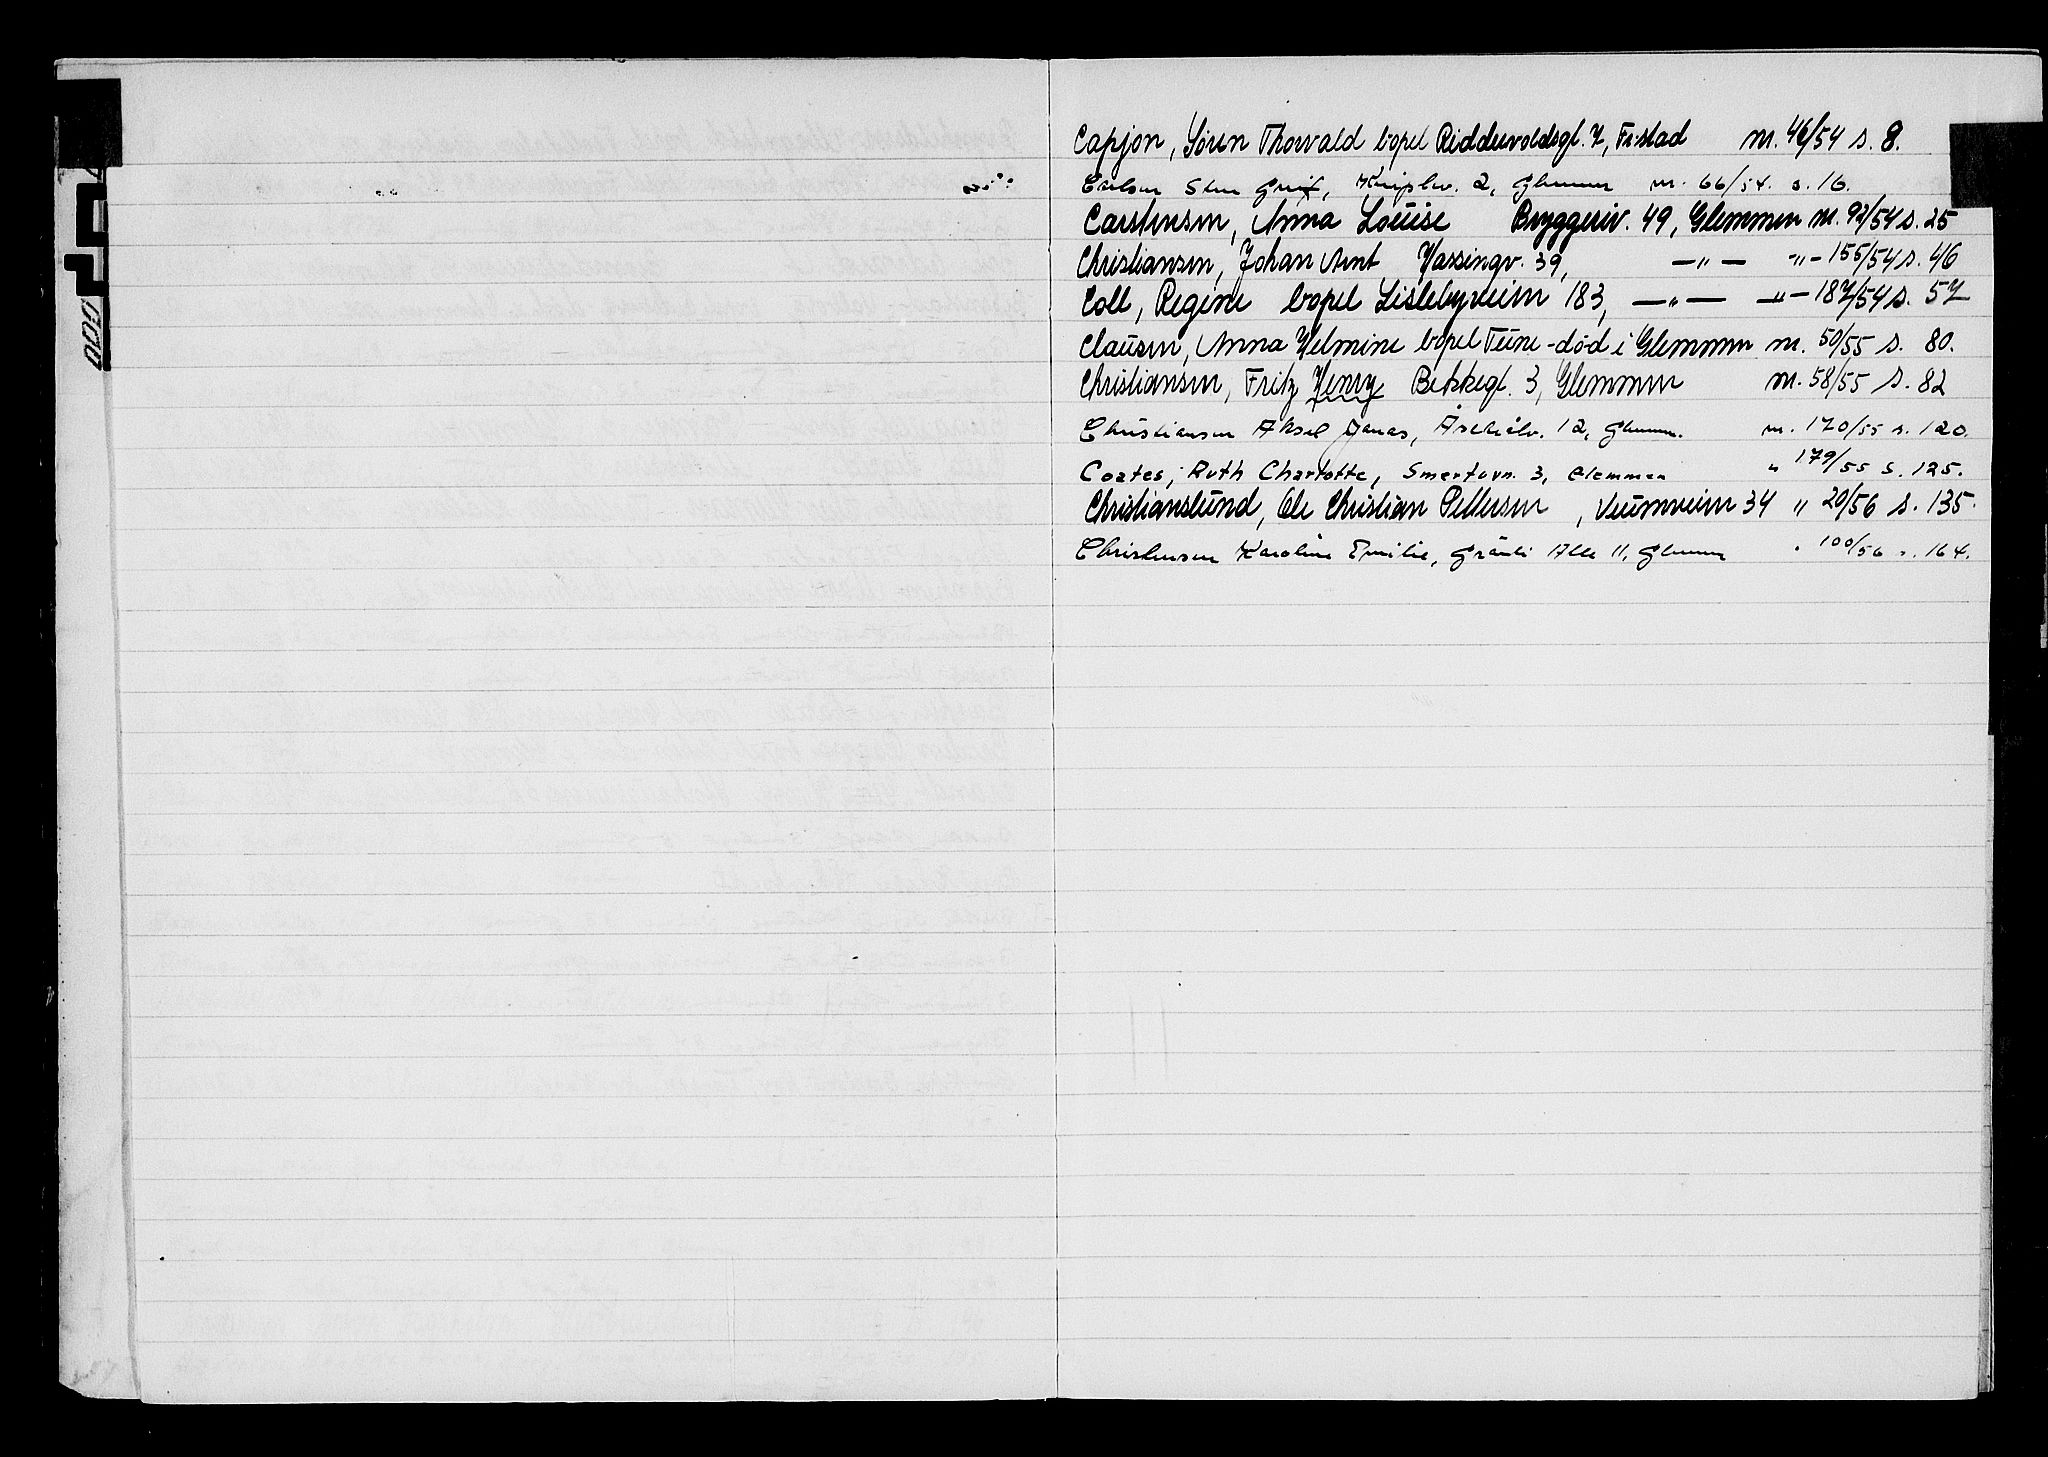 Capjon, Sören Thorvald bopel Ridderwoldsgt. 7, Fr.stad nr. 46/54 s. 8.
Carlsen Sten 2, Glemmen nr. 66/54. s. 16.
Carstensen, Anna Louise Bryggeriv. 49, Glemmen nr. 92/54 s. 25
Christiansen, Johan Arnt Hassingv. 39, —"— "— 155/54 s. 46
Coll, Regine bopel Lislebyveien 183, —"— "— 187/54 s. 57
Clausen, Anna Helmine bopel Tune - död i Glemmen nr. 50/55 s. 80.
Christiansen, Fritz Henry Bekkegt. 3, Glemmen nr. 58/55 s. 82
Christiansen Aksel Jonas, 12, Glemmen. nr. 170/55 s. 120.
Coates, Ruth Charlotte, Smertuvn. 3, Glemmen " 179/55 s. 125.
Christianslund, Ole Christian Pettersen, Veumveien 34 " 20/56 s. 135.
Christensen Karoline Emilie, Gråuli Alle 11, Glemmen " 100/56 s. 164.